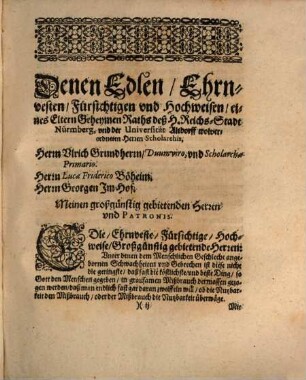 Denen Edlen / Ehrn-
vesten / Fürsichtigen vnd Hochweisen / ei-
nes Eltern Geheymen Raths deß H. Reichs-Stadt
Nürmberg, vnd der Universität Altdorff wolver-
ordneten Herrn Scholarchis,
Herrn Vlrich Grundherrn / Duumviro, vnd Scholarchæ
Primario.
Herrn Lucæ Friderico Böheim.
Herrn Georgen Im Hof.
Meinen großgünstig gebietenden Herren
vnd PATRONIS.
EDle / Ehrnveste / Fürsichtige / Hoch-
weise / Großgünstig gebietende Herren:
Vnter denen dem Menschlichen Geschlecht ange-
bornen Schwachheiten vnd Gebrechen ist diese nicht
die geringste / daß fast die köstlichste vnd beste Ding / so
Gott den Menschen gegeben / in grausamen Mißbrauch dermassen gezo-
gen werden / daß man endlich fast gar daran zweiffeln wil / ob die Nutzbar-
keit den Mißbrauch / oder der Mißbrauch die Nutzbarkeit überwäge.
)( ij Mir